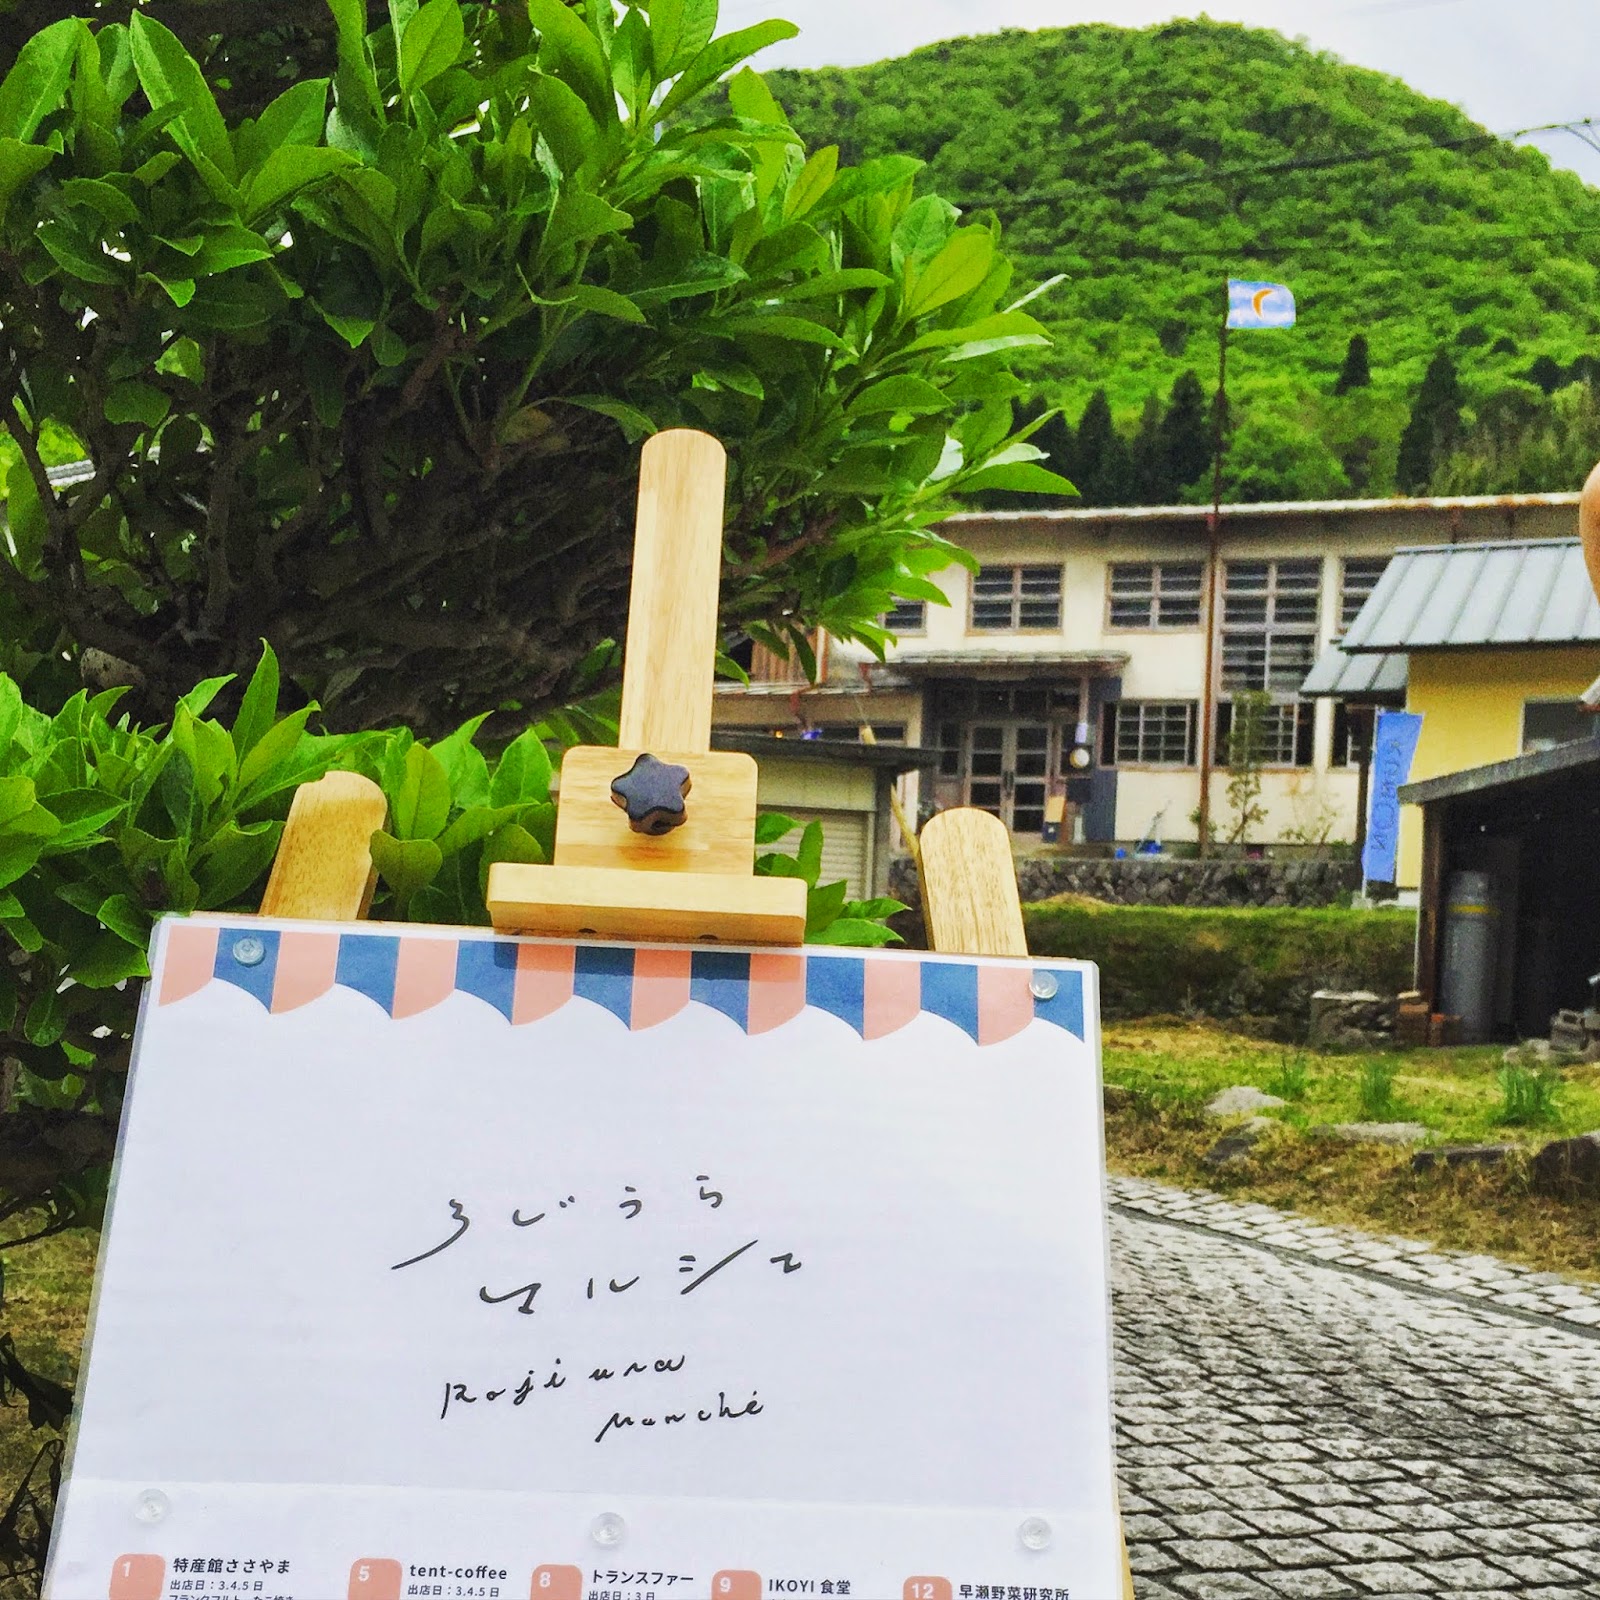 ろじうら
マルシェ
Rojiura
Marché
1 特産館ささやま
出店日：3.4.5日
フランクフルト、たこ焼き
5 tent-coffee
出店日：3.4.5日
8 トランスファー
出店日：3日
9 IKOYI 食堂
12 早瀬野菜研究所